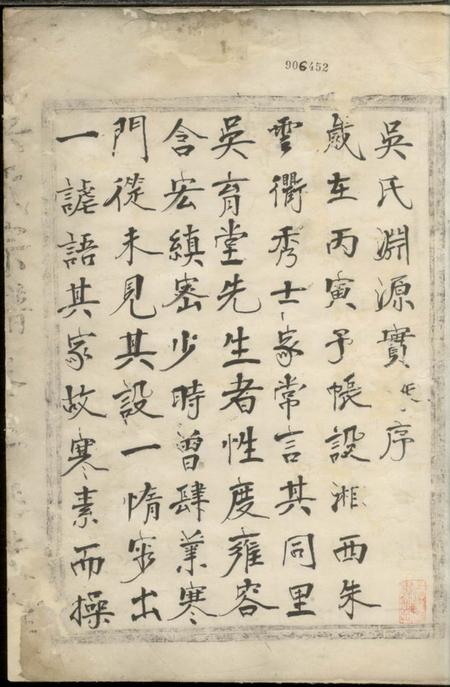 906452
吳氏淵源實序
歲在丙寅予帳設湘西朱
雲衢秀士家常言其同里
吳育堂先生者性度雍容
含宏縝密少時曾肆業寒
門從未見其設一惰容出
一謔語其家故寒素而操